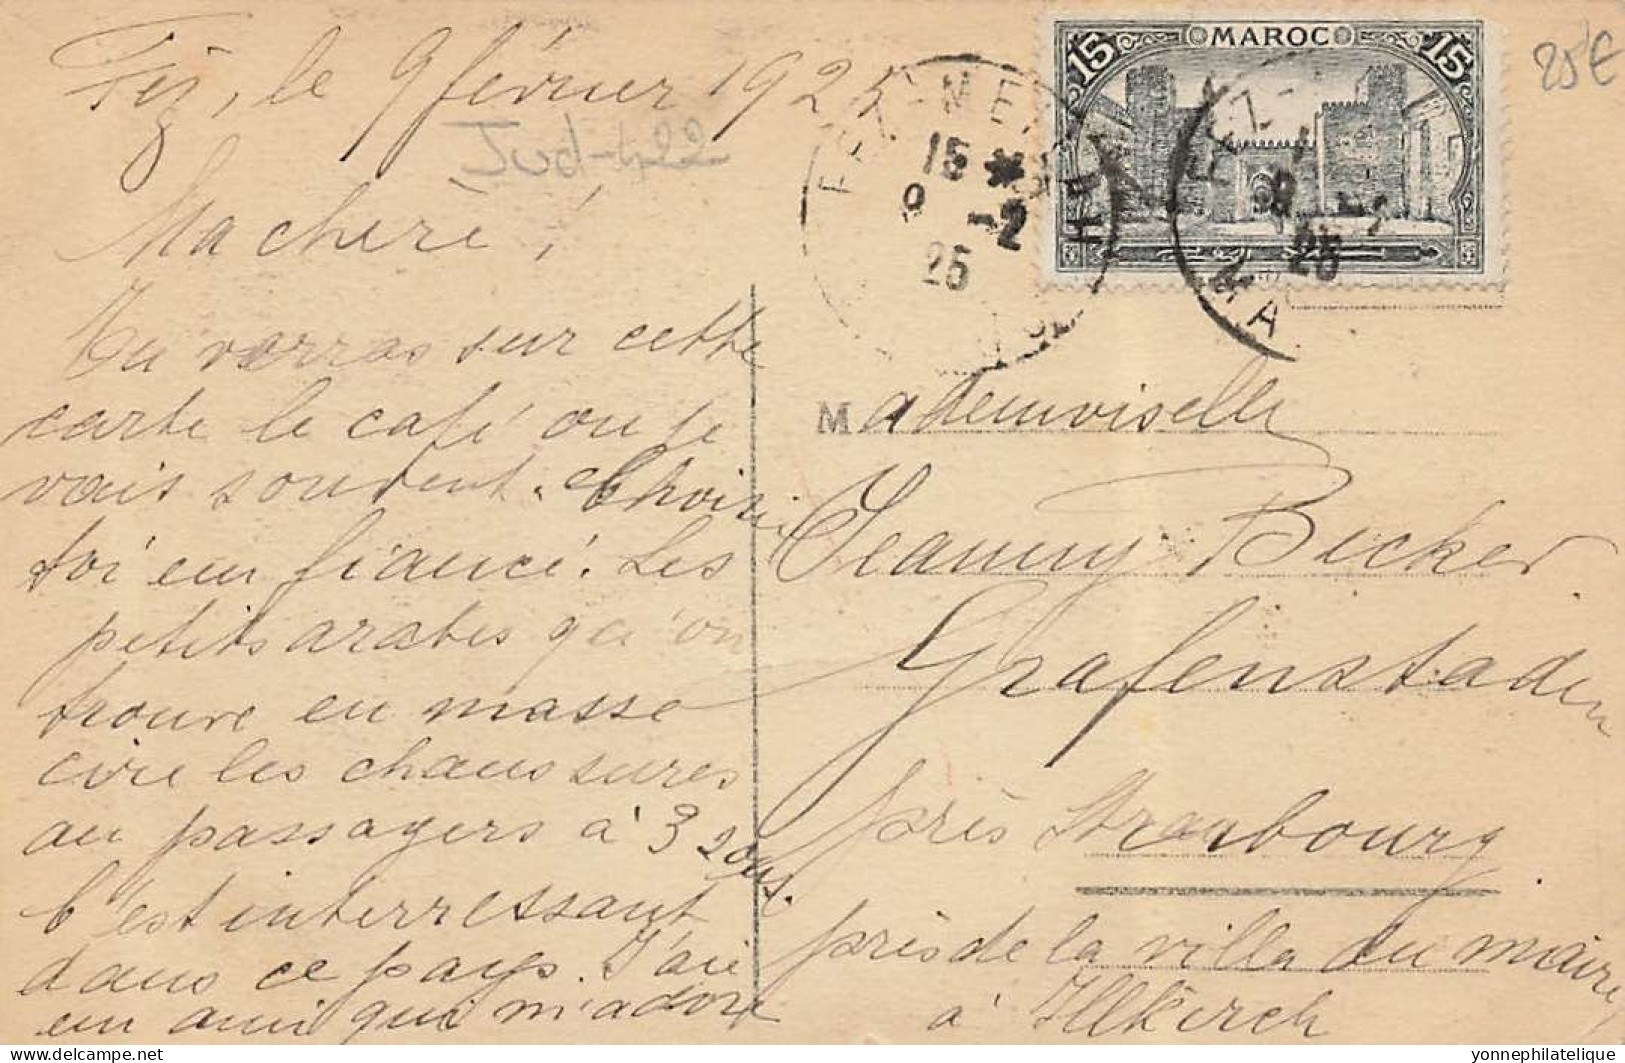 Fez, le 9 février 1925
Jud-422
Ma cherè !
Tu verras sur cette
carte le café ou je
vais souvent. Choisi
toi en fiancé. Les
petits arabes qu'on
trouve en masse
cire les chaussures
au passagers à 3 sous.
C'est interressant
dans ce pays. J'aie
un ami qui m'adore
MAROC
15 15
FEZ-ME
15 *
9 -2
25
FEZ-
9 -2
25
MA
25 €
Mademoiselle
Jeanny Becker
Grafenstaden
près Strasbourg
près de la villa du maire
à Illkirch
yonnephilatelique
DELCAMPE.NET